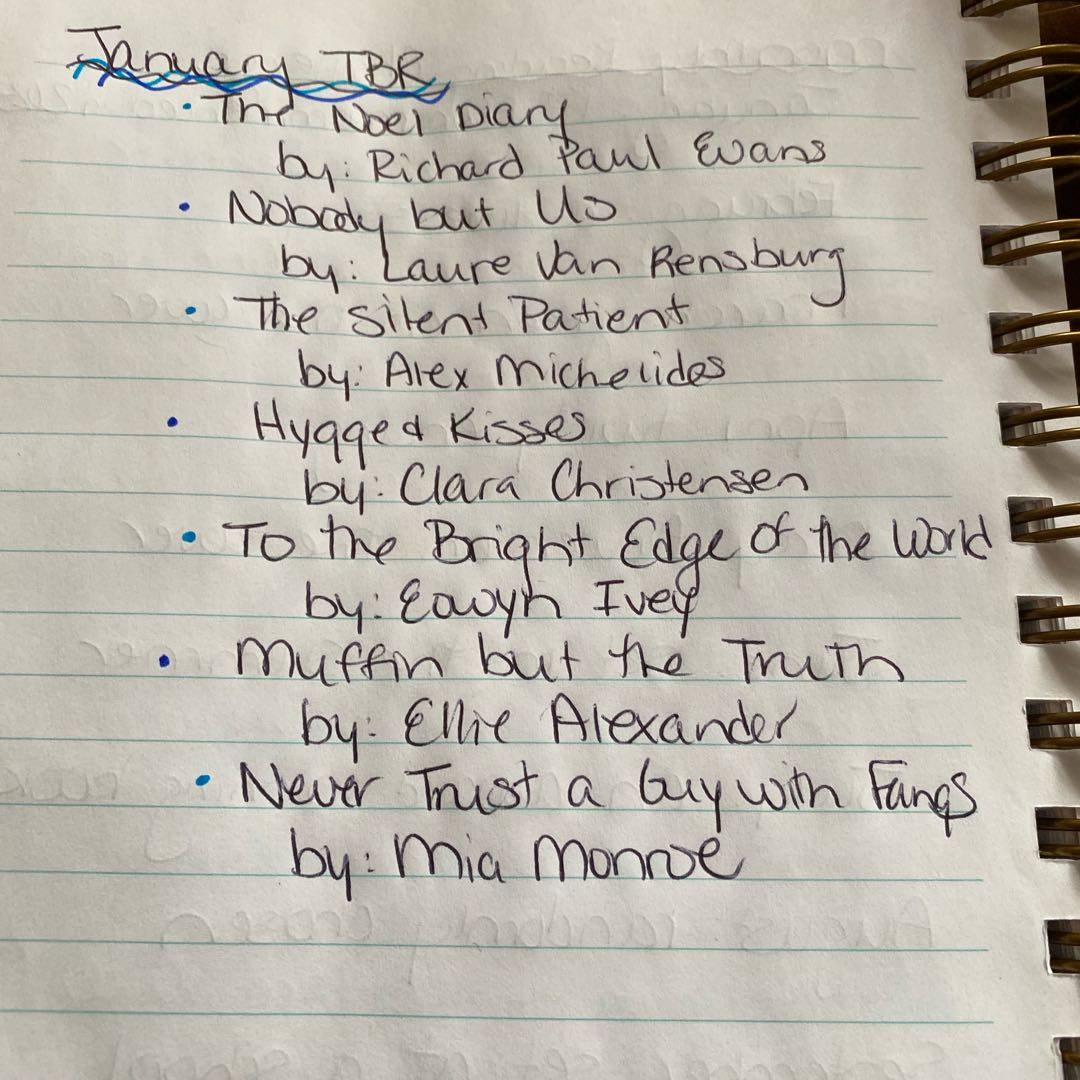 January TBR
• The Noel Diary
by: Richard Paul Evans
• Nobody but Us
by: Laure Van Rensburg
• The Silent Patient
by: Alex Michelides
• Hygge & Kisses
by: Clara Christensen
• To the Bright Edge of the World
by: Eowyn Ivey
• Muffin but the Truth
by: Ellie Alexander
• Never Trust a Guy with Fangs
by: Mia Monroe